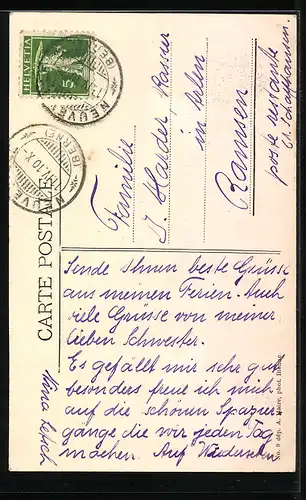 HELVETIA
5
NEUVE
(BERNE)
CARTE POSTALE
Familie
J. Harder, Kassier
in
Ramsen
poste restante
Ct. Schaffhausen
Sende Ihnen beste Grüsse
aus meinen Ferien. Auch
viele Grüsse von meiner
lieben Schwester.
Es gefällt mir sehr gut
besonders freue ich mich
auf die schönen Spazier
gänge die wir jeden Tag
machen. Auf Wiedersehn
No. 9 dép. A. phot.